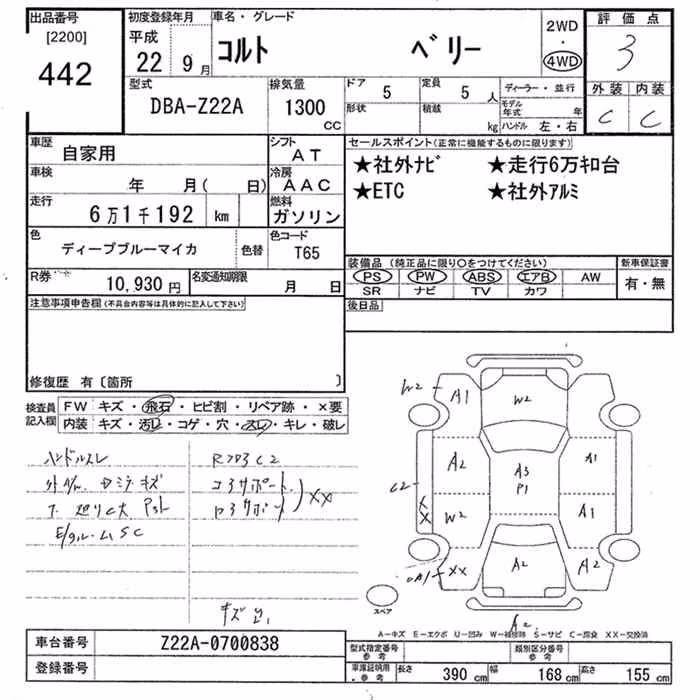 出品番号 初度登録年月 車名・グレード 2WD 評価点
[2200] 平成 ・ 3
442 22 9月 コルト ベリー 4WD
型式 排気量 ドア 5 定員 5人 ディーラー・並行 外装 内装
DBA-Z22A 1300 CC 形状 積載 kg モデル年式 年 C C
ハンドル 左・右
車歴 自家用 シフト AT セールスポイント(正常に機能するものに限ります)
車検 年 月( 日) 冷房 AAC ★社外ナビ ★走行6万キロ台
走行 6万1千192 km 燃料 ガソリン ★ETC ★社外アルミ
色 ディープブルーマイカ 色替 色コード T65
装備品(純正品に限り○をつけてください) 新車保証書
R券 10,930円 名変通知期限 月 日 PS PW ABS エアB AW 有・無
SR ナビ TV カワ
注意事項申告欄(不具合内容等は具体的に記入して下さい) 後日品
修復歴 有〔箇所 〕
検査員記入欄 FW キズ・飛石・ヒビ割・リペア跡・×要
内装 キズ・汚レ・コゲ・穴・スレ・キレ・破レ
ハンドルスレ
XX
キズ
W2 A1 W2
A2 A3 P1 A1
C2 XX W2 A1
XX A2 A2
A2
スペア
A－キズ E－エクボ U－凹み W－補修跡 S－サビ C－腐食 XX－交換済
車台番号 Z22A-0700838 型式指定番号 参考 類別区分番号 参考
登録番号 車庫証明用・参考 長さ 390 cm 幅 168 cm 高さ 155 cm